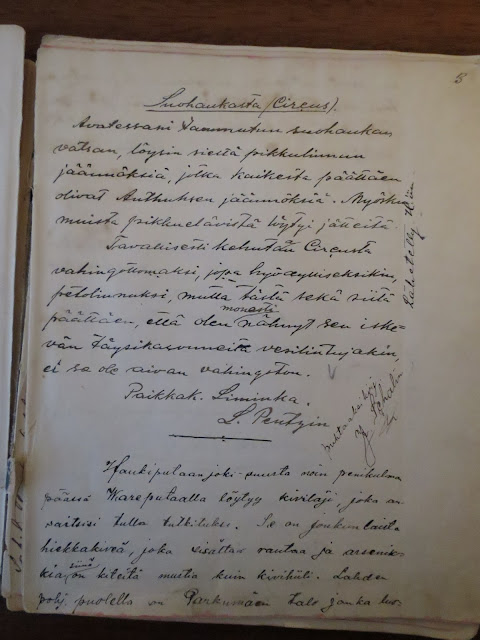 3
Suohaukasta (Circus).
Avatessani tammutun suohaukan
vatsan, löysin sieltä pikkulinnun
jäännöksiä, jotka kaikesta päättäen
olivat Anthuksen jäännöksiä. Myöskin
muista pikkueläv­istä löytyi jätteitä.
Tavallisesti kehutaan Circusta
vahingottomaksi, jopa hyödyllisek­sikin,
petolinnuksi, mutta tästä sekä siitä
monesti
päättäen, että olen nähnyt sen iske-
vän täysikasvuneita vesilintujakin,
ei se ole aivan vahingoton.
Paikkak. Liminka.
L. Pentzin
Lähetetty
Y.
Haukiputaan joki-suusta noin penikulma
päässä Kareputaalla löytyy kivilaji joka an-
saitsisi tulla tutkituksi. Se on jonkun laista
hiekkakiveä, joka sisältää rautaa ja arsenik-
kia, siinä on kiteitä mustia kuin kivihiili. Lahden
pohj. puolella on Parkumäen talo jonka luo-